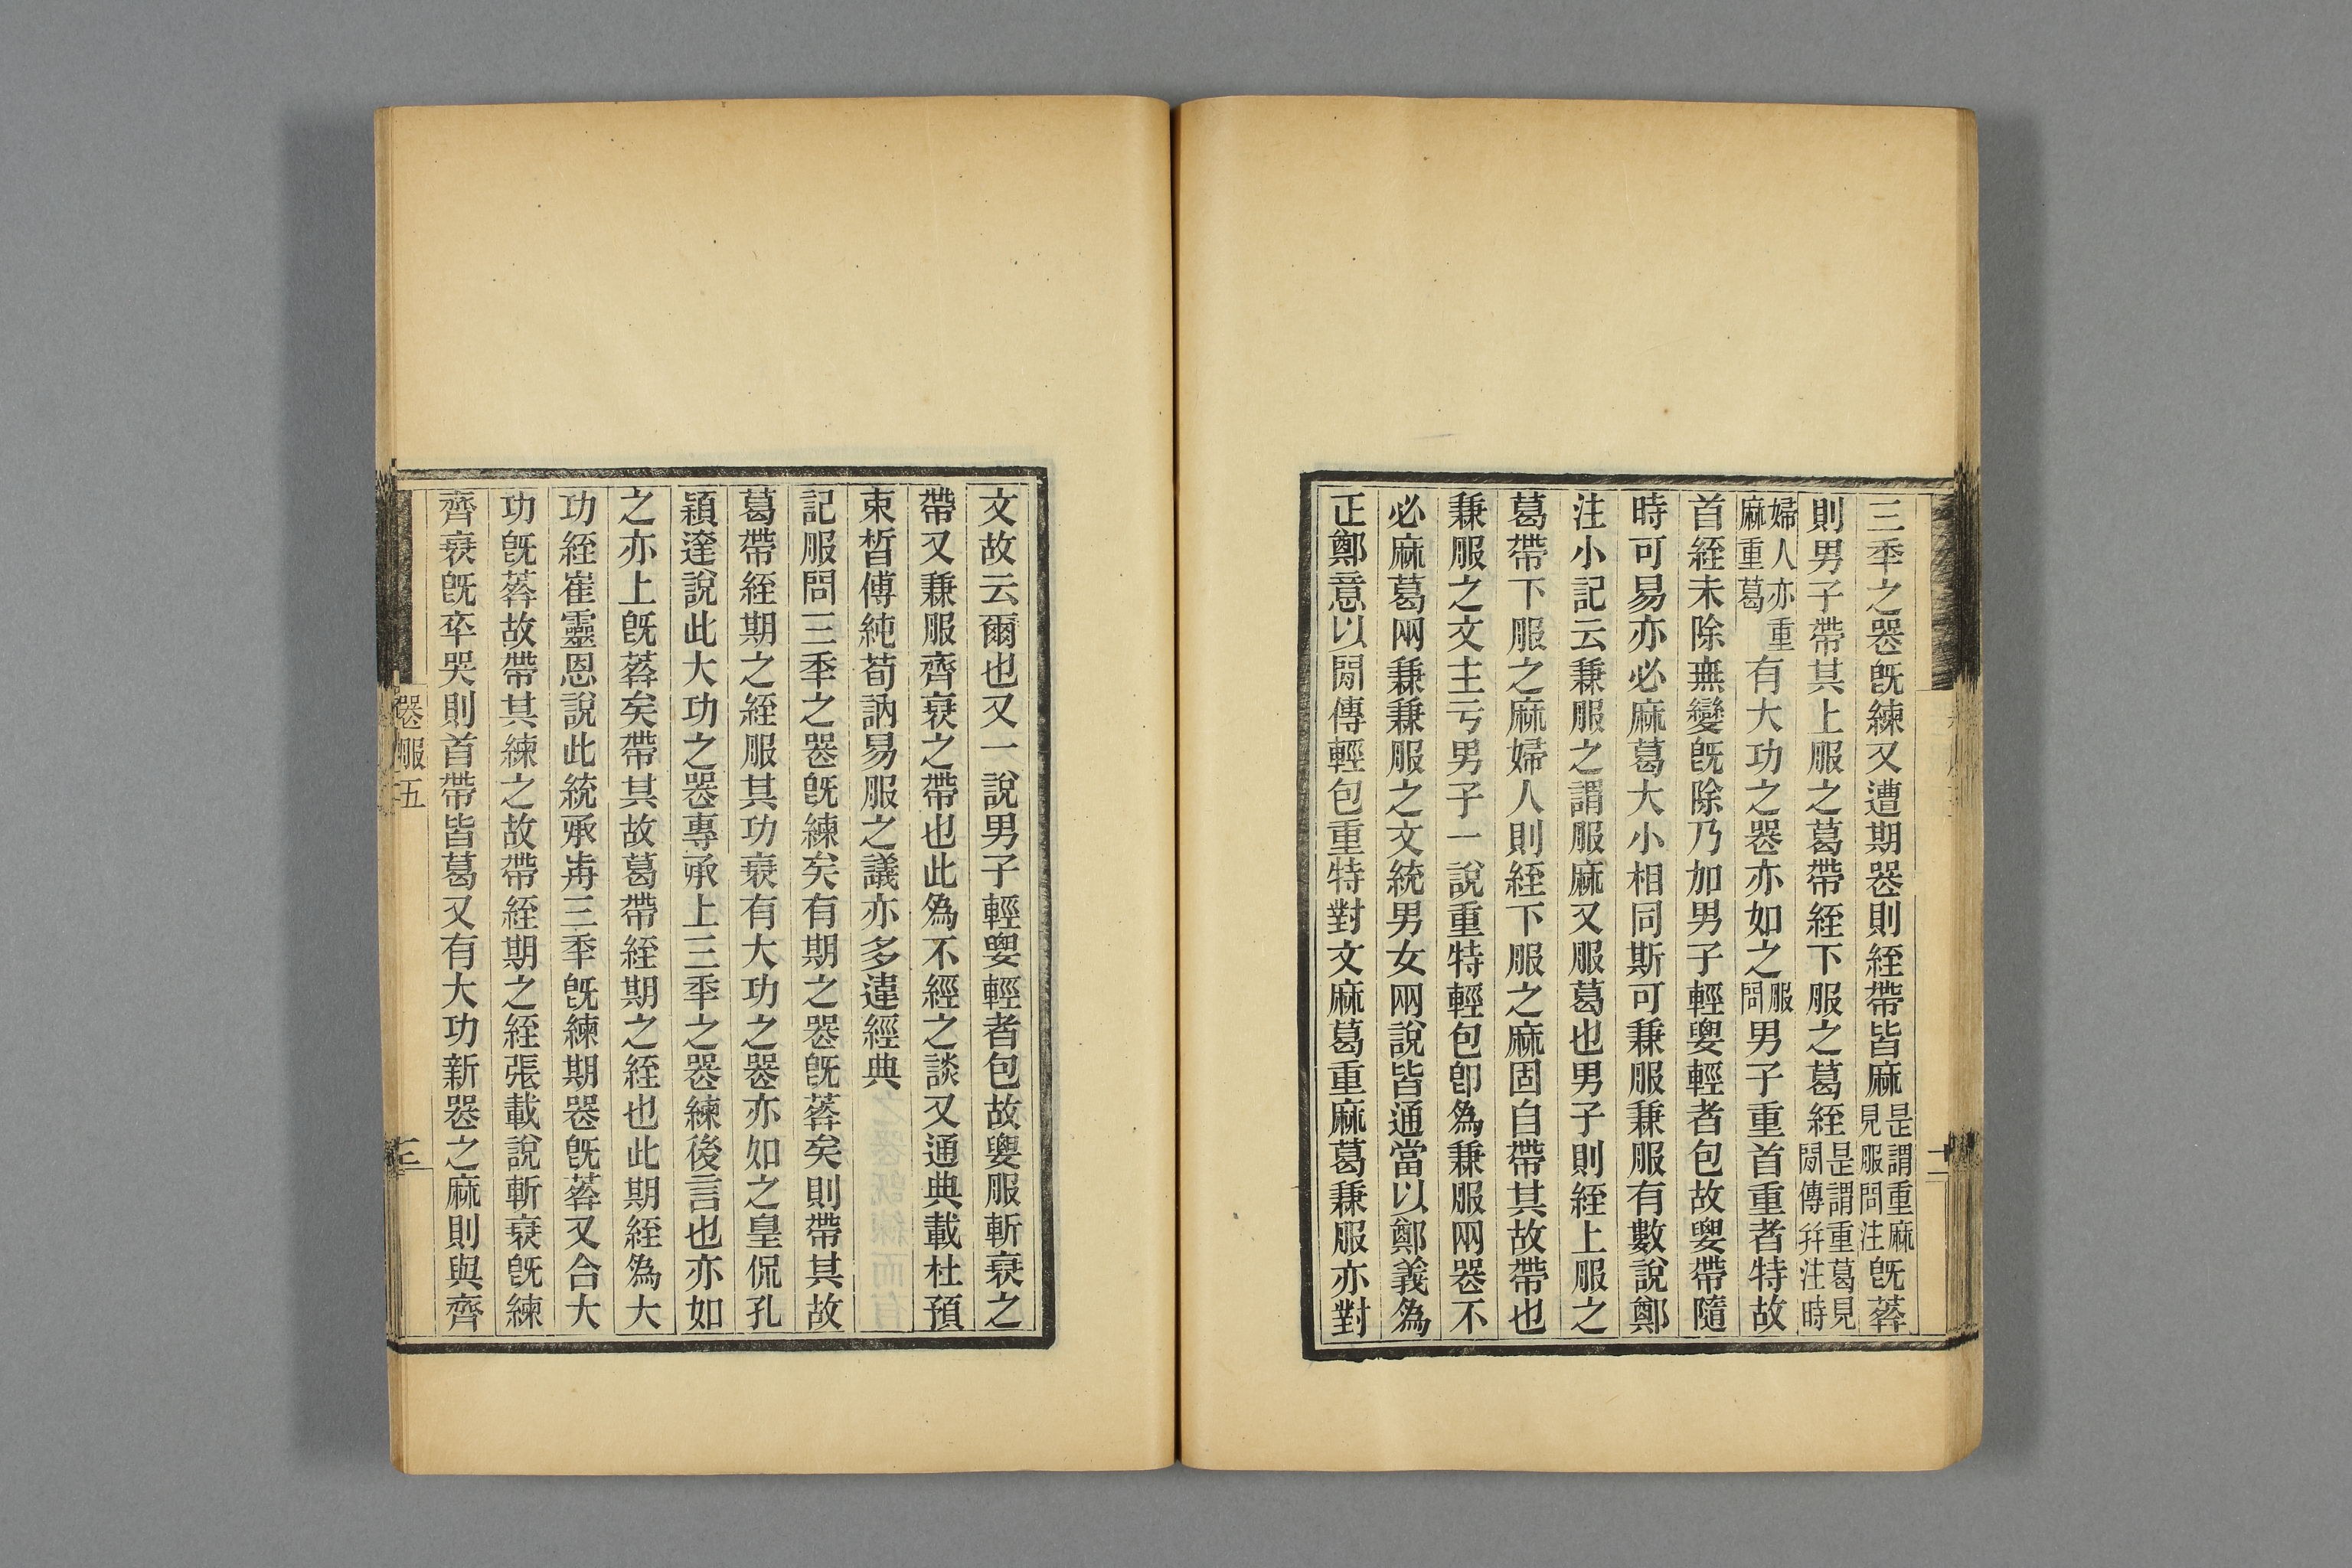 三秊之喪旣練又遭期喪則絰帶皆麻是謂重麻見服問注旣葬
則男子帶其上服之葛帶絰下服之葛絰是謂重葛見閒傳幷注時
婦人亦重麻重葛有大功之喪亦如之服問男子重首重者特故
首絰未除無變旣除乃加男子輕婁輕者包故婁帶隨
時可易亦必麻葛大小相同斯可兼服兼服有數說鄭
注小記云兼服之謂服麻又服葛也男子則絰上服之
葛帶下服之麻婦人則絰下服之麻固自帶其故帶也
兼服之文主亏男子一說重特輕包卽爲兼服兩喪不
必麻葛兩兼兼服之文統男女兩說皆通當以鄭義爲
正鄭意以閒傳輕包重特對文麻葛重麻葛兼服亦對
文故云爾也又一說男子輕婁輕者包故婁服斬衰之
帶又兼服齊衰之帶也此爲不經之談又通典載杜預
束晳傅純荀訥易服之議亦多違經典
記服問三秊之喪旣練矣有期之喪旣葬矣則帶其故
葛帶絰期之絰服其功衰有大功之喪亦如之皇侃孔
穎達說此大功之喪專承上三秊之喪練後言也亦如
之亦上旣葬矣帶其故葛帶絰期之絰也此期絰爲大
功絰崔靈恩說此統承歬三秊旣練期喪旣葬又合大
功旣葬故帶其練之故帶絰期之絰張載說斬衰旣練
齊衰旣卒哭則首帶皆葛又有大功新喪之麻則與齊
喪服五